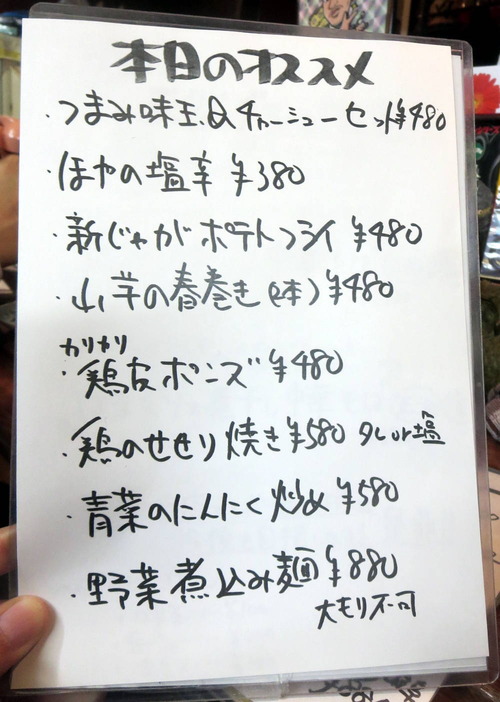 本日のオススメ
・つまみ味玉&チャーシューセット¥480
・ほやの塩辛 ¥380
・新じゃがポテトフライ ¥480
・山芋の春巻き(2本)¥480
カリカリ
・鶏皮ポンズ ¥480
・鶏のせせり焼き¥580 タレor塩
・青菜のにんにく炒め ¥580
・野菜煮込み麺¥880
大モリ不可